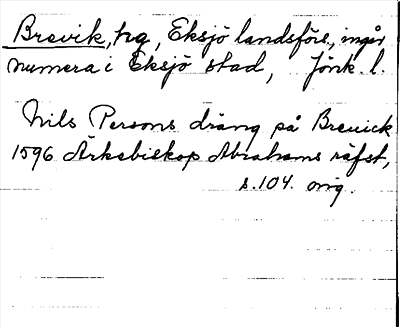 Brevik, hg, Eksjö landsförs, ingår
numera i Eksjö stad, Jönk. l.
Nils Persons dräng på Breuick
1596 Ärkebiskop Abrahams räfst,
s. 104. orig.